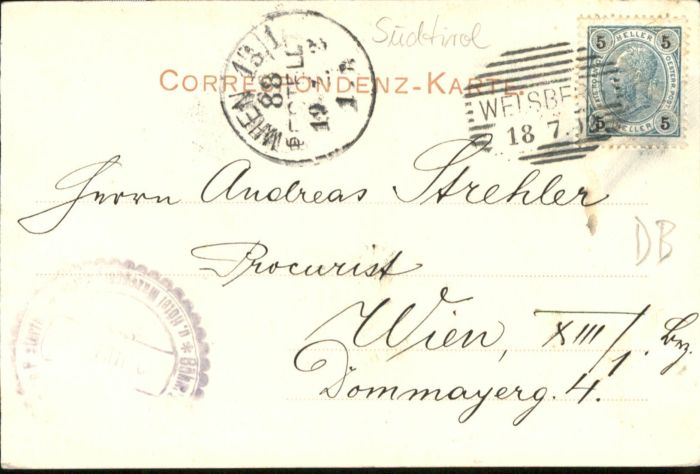 Südtirol
5 HELLER 5
5 HELLER 5
CORRESPONDENZ-KARTE.
WIEN 13/1
88
BESTELLT
WELSBE
18 7.
Herrn Andreas Strehler
Procurist
DB
Wien, XIII/1. Bz.
Dommayerg. 4.
u. Hôtel